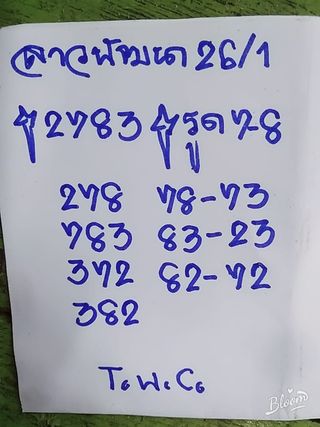 ลาวพัฒนา 26/1
2783 รูด 7-8
278 78-73
783 83-23
372 82-72
382
T.พ.C.
Bloom